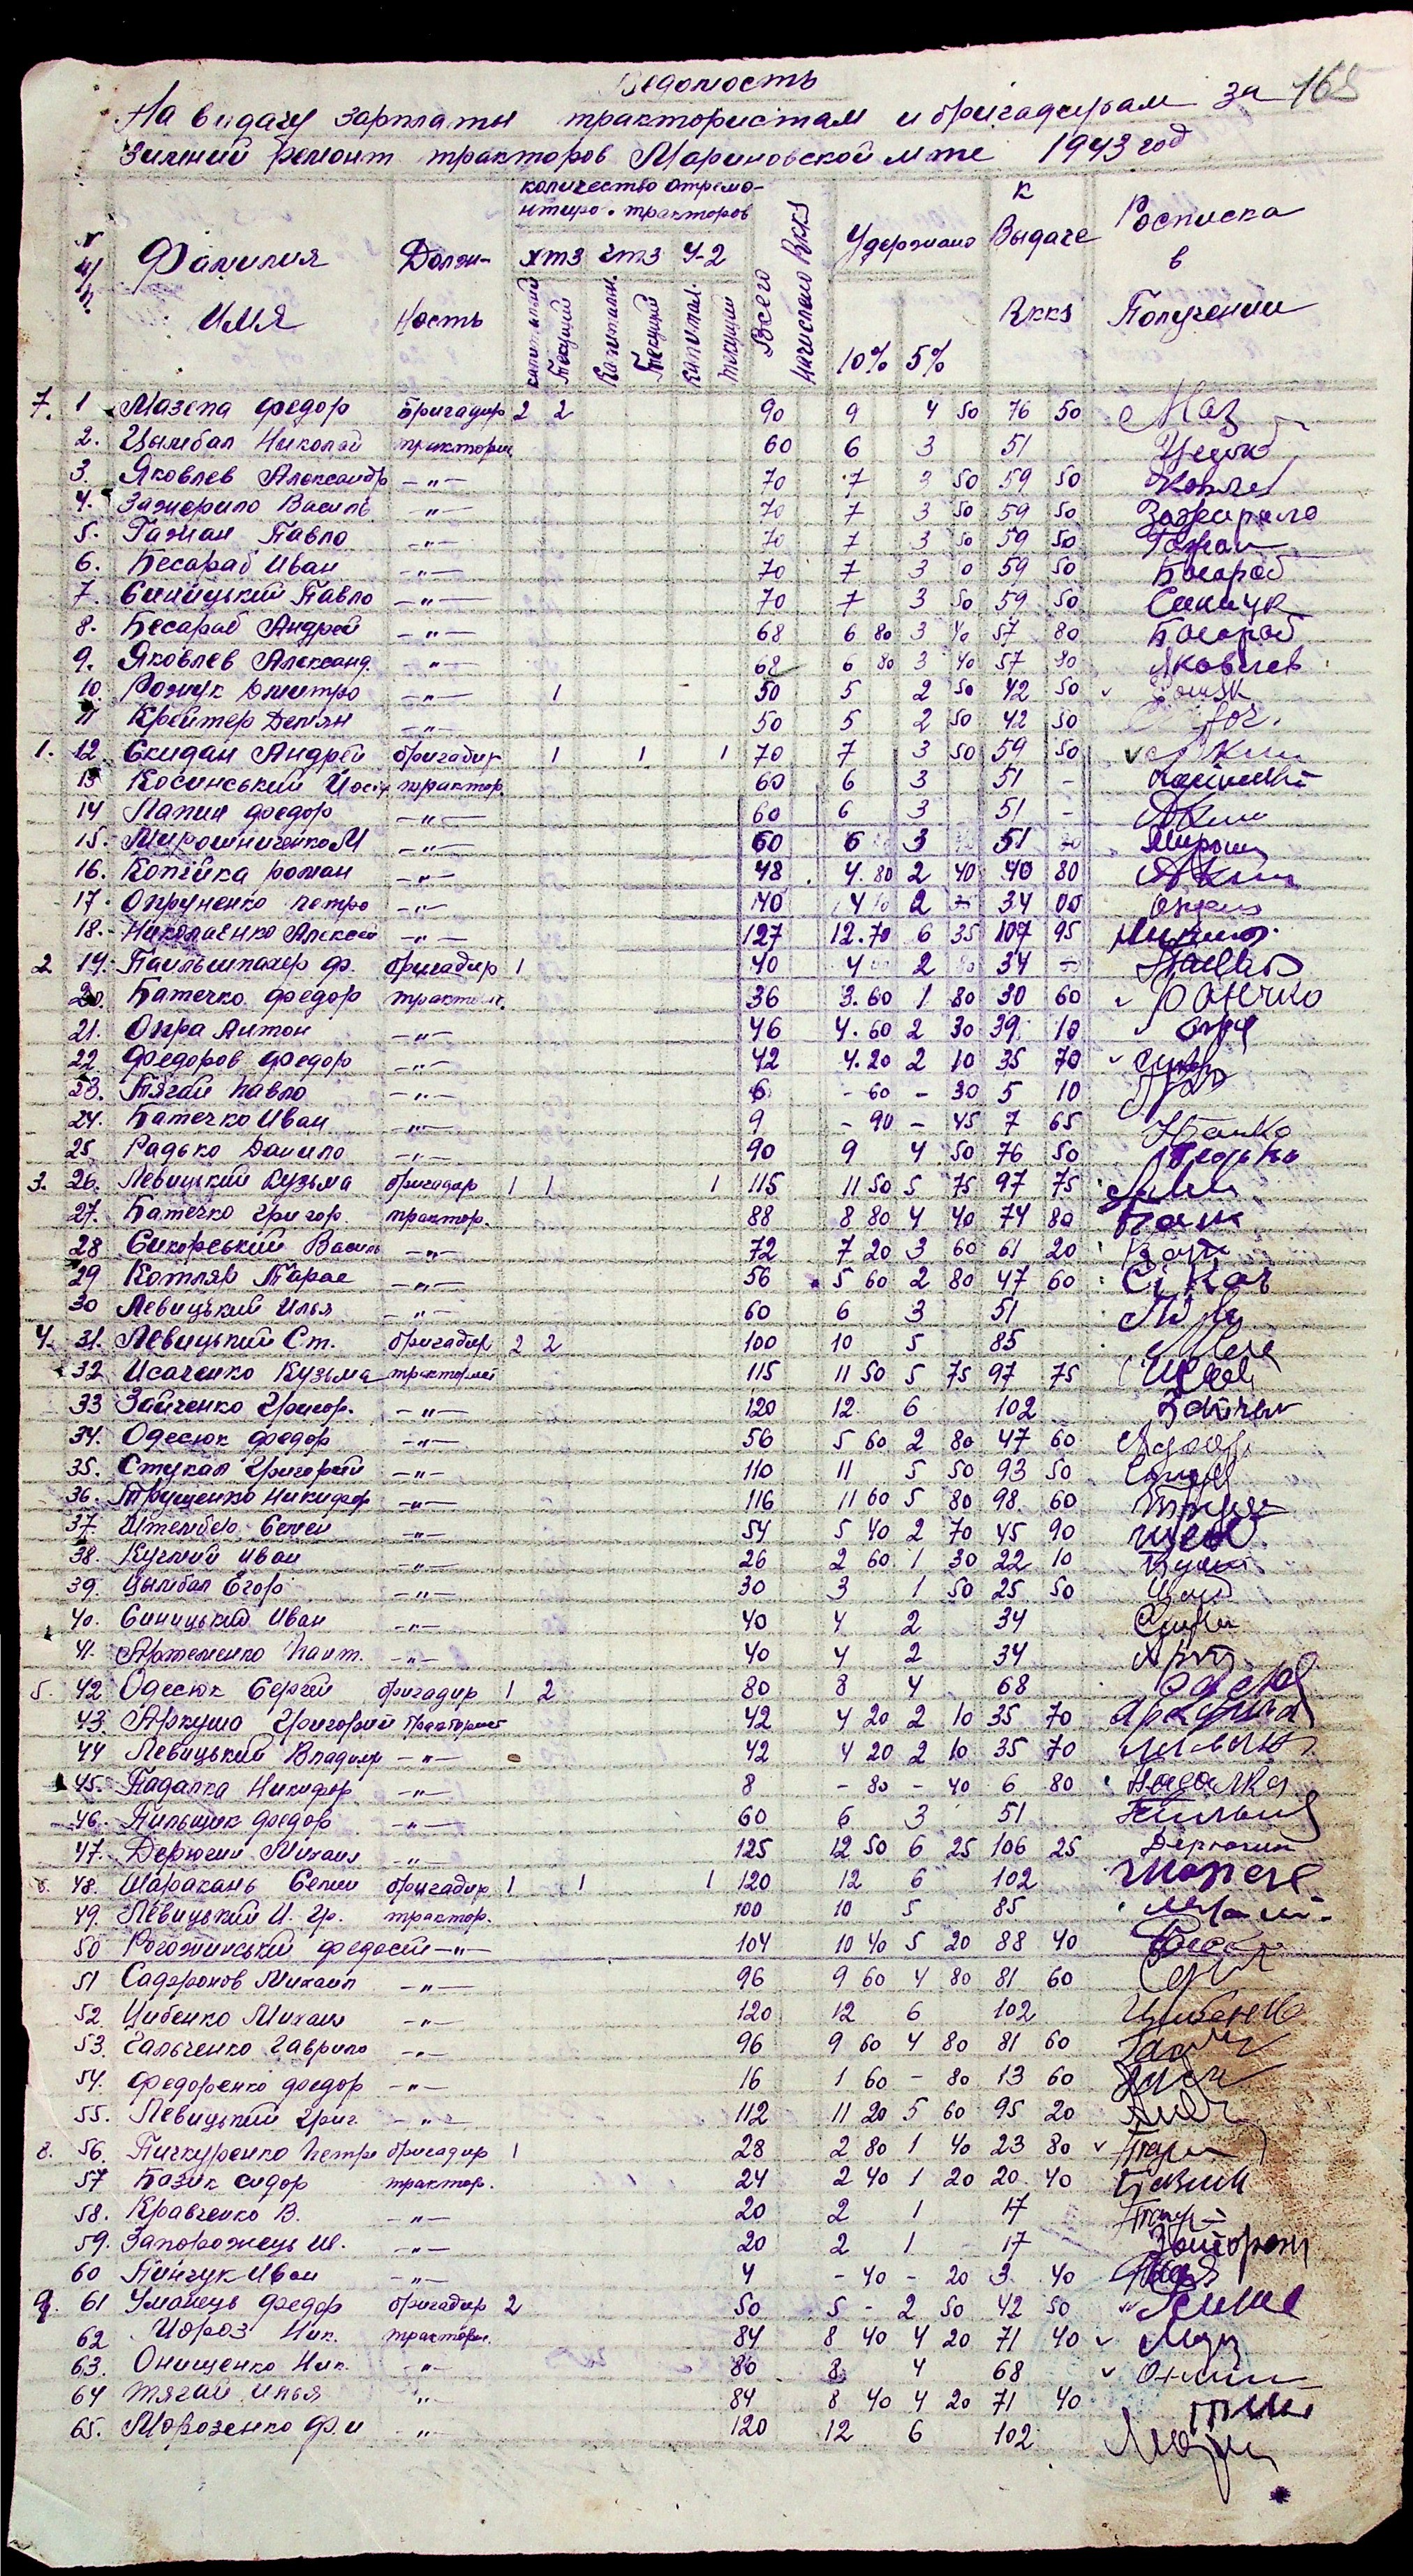 168
Ведомость
На видачу зарплаты трактористам и бригадирам за
зимний ремонт тракторов Мариновской мтс 1943 год
N п/п. Фамилия Имя Должность количество отремонтиро. тракторов Всего начислено Rkks Удержано К Выдаче Rkks Росписка в Получении
хтз чтз У-2
капитальный Текущий Капитальн. Текущий Капитал. текущий 10% 5%
7. 1 Мазепа Федор Бригадир 2 2 90 9 4 50 76 50 Маз
2. Цымбал Николай тракторис 60 6 3 51
3. Яковлев Александр —"— 70 7 3 50 59 50
4. Зажерило Василь —"— 70 7 3 50 59 50 Зажирило
5. Гажан Павло —"— 70 7 3 50 59 50 Гажан
6. Бесараб Иван —"— 70 7 3 0 59 50 Бесараб
7. Синицький Павло —"— 70 7 3 50 59 50
8. Бесараб Андрей —"— 68 6 80 3 40 57 80 Бесараб
9. Яковлев Александ. —"— 68 6 80 3 40 57 80 Яковлев
10. Рожук Дмитро —"— 1 50 5 2 50 42 50
11 Крейтер Демян —"— 50 5 2 50 42 50
1. 12 Скидан Андрей бригадир 1 1 1 70 7 3 50 59 50
13 Косинський Йосип трактор 60 6 3 51 -
14 Лапин Федор —"— 60 6 3 51 -
15. Мирошниченко М —"— 60 6 3 51 Мирош
16. Копійка роман —"— 48 4.80 2 40 40 80
17. Опруненко петро —"— 40 4 2 - 34 00
18. Николаенко Алексей —"— 127 12.70 6 35 107 95
2 19. Паильшпахер Ф. бригадир 1 40 4 2 34 -
20. Батечко Федор трактори. 36 3.60 1 80 30 60
21. Опра Антон —"— 46 4.60 2 30 39 10 Опра
22. Федоров Федор —"— 42 4.20 2 10 35 70
23. Тягай павло —"— 6 - 60 - 30 5 10
24. Батечко Иван —"— 9 - 90 - 45 7 65
25 Радько Данило —"— 90 9 4 50 76 50 Редько
3. 26. Левицький Кузьма бригадир 1 1 1 115 11 50 5 75 97 75
27. Батечко Григор. трактор. 88 8 80 4 40 74 80
28 Сикорський Василь —"— 72 7 20 3 60 61 20
29 Котляр Тарас —"— 56 5 60 2 80 47 60
30 Левицький Илья —"— 60 6 3 51
4. 31. Левицький Ст. бригадир 2 2 100 10 5 85
32 Исаченко Кузьма тракторист 115 11 50 5 75 97 75
33 Зайченко Григор. —"— 120 12 6 102
34. Одесюк Федор —"— 56 5 60 2 80 47 60
35. Стукал Григорий —"— 110 11 5 50 93 50
36. Трущенко Никифор —"— 116 11 60 5 80 98 60
37. Штембер Семен —"— 54 5 40 2 70 45 90
38. Кучмий Иван —"— 26 2 60 1 30 22 10
39. Цымбал Егор —"— 30 3 1 50 25 50
40. Синицький Иван —"— 40 4 2 34
41. Артеменко Пант. —"— 40 4 2 34
5. 42 Одесюк Сергей бригадир 1 2 80 8 4 68
43. Аркуша Григорий тракторист 42 4 20 2 10 35 70
44 Левицький Владимр —"— 42 4 20 2 10 35 70
45. Падалка Никифор —"— 8 - 80 - 40 6 80
46. Пильщик Федор —"— 60 6 3 51
47. Дерюгин Михаил —"— 125 12 50 6 25 106 25 Дерюгин
6. 48. Шаракань Семен бригадир 1 1 1 120 12 6 102
49. Левицький И. Гр. трактор. 100 10 5 85
50 Рогожинський Федосей —"— 104 10 40 5 20 88 40
51 Сафронов Михаил —"— 96 9 60 4 80 81 60
52 Цибенко Михаил —"— 120 12 6 102
53. Гальченко Гаврило —"— 96 9 60 4 80 81 60
54. Федоренко Федор —"— 16 1 60 - 80 13 60
55. Левицький Григ. —"— 112 11 20 5 60 95 20
8. 56. Пичкуренко Петро бригадир 1 28 2 80 1 40 23 80
57 Базик сидор трактор. 24 2 40 1 20 20 40
58. Кравченко В. —"— 20 2 1 17
59. Запорожець Ив. —"— 20 2 1 17
60 Пинчук Иван —"— 4 - 40 - 20 3 40
9. 61 Уманець Федор бригадир 2 50 5 - 2 50 42 50
62 Мороз Ник. трактори. 84 8 40 4 20 71 40
63. Онищенко Ник. —"— 80 8 4 68
64 Тягай Илья —"— 84 8 40 4 20 71 40
65. Морозенко Фи —"— 120 12 6 102